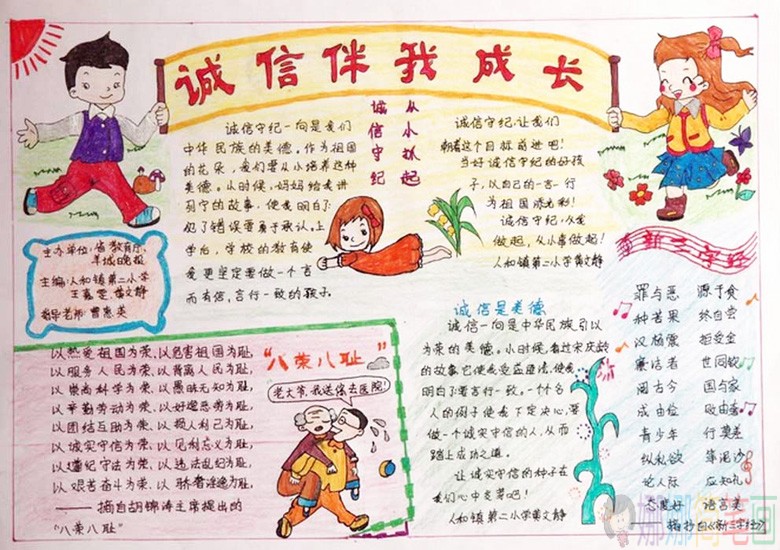 诚信伴我成长
从小抓起
诚信守纪
诚信守纪一向是我们
中华民族的美德。作为祖国
的花朵，我们要从小培养这种
美德。从时候，妈妈给我讲
列宁的故事，使我明白了
犯了错误要勇于承认。上
学后，学校的教育使
我更坚定要做一个言
而有信，言行一致的孩子。
诚信守纪，让我们
朝着这个目标前进吧！
当好诚信守纪的好孩
子，以自己的一言一行
为祖国添光彩！
诚信守纪，从我
做起，从小事做起！
人和镇第二小学黄文静
主办单位：省教育厅、
羊城晚报
主编：人和镇第二小学
王嘉雯 黄文静
指导老师 曾惠英
"八荣八耻"
以热爱祖国为荣，以危害祖国为耻，
以服务人民为荣，以背离人民为耻，
以崇尚科学为荣，以愚昧无知为耻，
以辛勤劳动为荣，以好逸恶劳为耻，
以团结互助为荣，以损人利己为耻，
以诚实守信为荣，以见利忘义为耻，
以遵纪守法为荣，以违法乱纪为耻，
以艰苦奋斗为荣，以骄奢淫逸为耻。
——摘自胡锦涛主席提出的
"八荣八耻"
老大爷，我送您去医院！
诚信是美德
诚信一向是中华民族引以
为荣的美德。小时候，看过宋庆龄
的故事
明白了要言行一致。一个个名
人的例子使我下定决心，要
做一个诚实守信的人，从而
踏上成功之道。
让诚实守信的种子在
我们心中发芽吧！
人和镇第二小学黄文静
新三字经
罪与恶 源于贪
种苦果 终自尝
汉杨震 拒受金
廉洁者 世同钦
阅古今 国与家
成由俭 败由奢
青少年 行莫差
纵私欲 
论人际 应知礼
态度好 语言美
摘抄自《新三字经》
娜娜简笔画